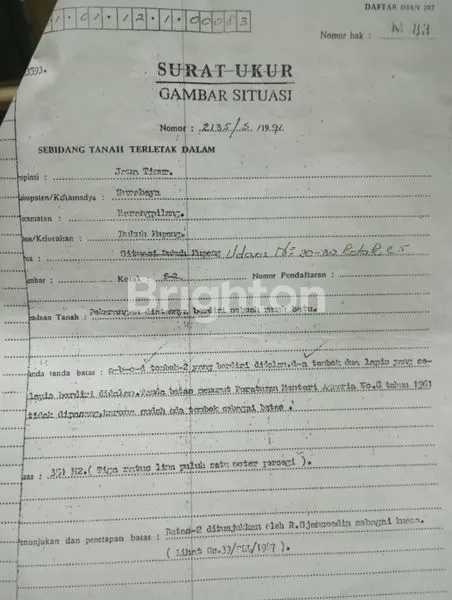 DAFTAR ISIAN 207
1.01.12.1.00083
Nomor hak : M 83
3593.
SURAT UKUR
GAMBAR SITUASI
Nomor : 2135/S/1991
SEBIDANG TANAH TERLETAK DALAM
opinsi : Jawa Timur.
abupaten/Kotamadya : Surabaya
ecamatan : Karangpilang.
esa/Kelurahan : Dukuh Kupang.
: Situasi Dukuh Kupang Udara No
mbar : Kotak Nomor Pendaftaran :
Brighton
eadaan Tanah : Pekarangan diatasnya berdiri sebuah rumah batu.
anda tanda batas : a-b-c-d tembok-2 yang berdiri didalam. d-a tembok dua lapis yang se-
lapis berdiri didalam. Tanda batas menurut Peraturan Menteri Agraria No.8 tahun 1961
tidak dipasang, karena sudah ada tembok sebagai batas.
uas : 351 M2. ( Tiga ratus lima puluh satu meter persegi ).
enunjukan dan penetapan batas : Batas-2 ditunjukkan oleh R.Sjamsoedin sebagai kuasa.
( Lihat Gs.33/ /1987 ).